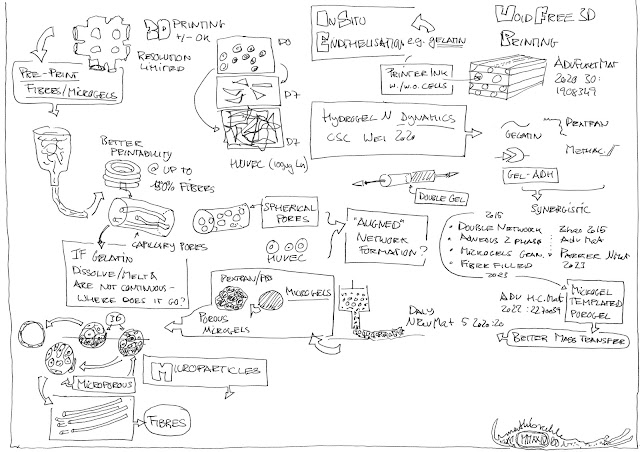 3D PRINTING
+/- OK
RESOLUTION
LIMITED
PRE-PRINT
FIBRES/MICROGELS
D0
D7
D7
HUVEC
IN SITU
ENDOTHELISATION e.g. gelatin
PRINTER INK
W./W.O. CELLS
VOID FREE 3D
PRINTING
ADV FUNCT MAT
2020 30:
1908349
HYDROGEL N DYNAMICS
CSC WEI 2020
GELATIN
DEXTRAN
METHAC
GEL-ADH
SYNERGISTIC
BETTER
PRINTABILITY
@ UP TO
FIBRES
CAPILLARY PORES
SPHERICAL
PORES
HUVEC
DOUBLE GEL
"ALIGNED"
NETWORK
FORMATION?
2015
• DOUBLE NETWORK
• AQUEOUS 2 PHASE
• MICROGELS GRAN.
• FIBRE FILLED
2023
2015
ADV MAT
NMAT
2023
IF GELATIN
DISSOLVE/MELT &
ARE NOT CONTINUOUS -
WHERE DOES IT GO?
DEXTRAN/PBS
MICROGELS
POROUS
MICROGELS
DALY
5 2020:20
ADV H.C. MAT
2022:
MICROGEL
TEMPLATED
POROGEL
BETTER MASS TRANSFER
MICROPOROUS
MICROPARTICLES
FIBRES